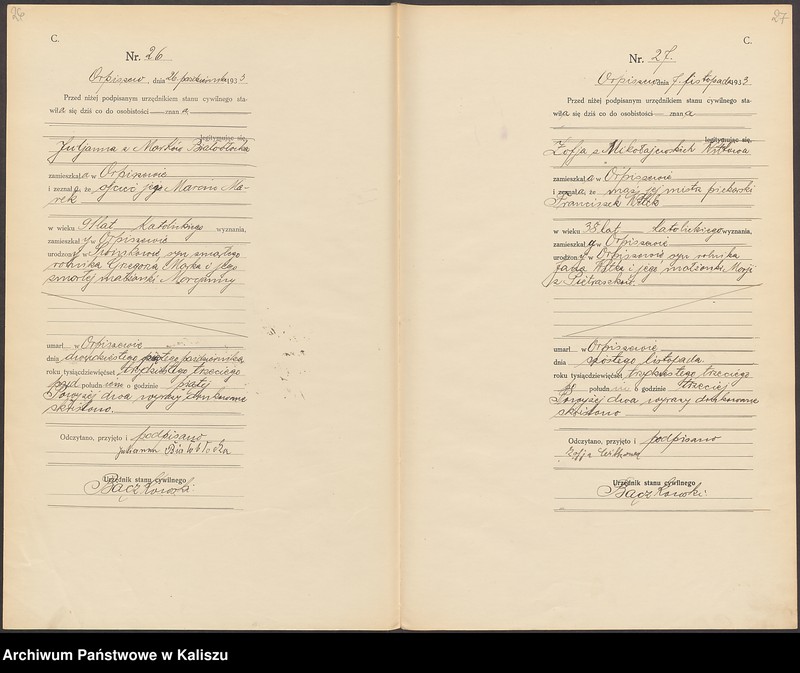 26
C.
Nr. 26
Orpiszew, dnia 26 października 1933
Przed niżej podpisanym urzędnikiem stanu cywilnego sta-
wiła się dziś co do osobistości znana
legitymując się,
Julianna z Marków Białobłocka
zamieszkała w Orpiszewie
i zeznała, że ojciec jej Marcin Ma-
rek
w wieku 91 lat katolickiego wyznania,
zamieszkały w Orpiszewie
urodzony w syn zmarłego
rolnika Grzegorza Marka i jego
zmarłej małżonki Marjanny
umarł w Orpiszewie
dnia dwudziestego piątego października
roku tysiącdziewięćset trzydziestego trzeciego
przed południem o godzinie piątej
Powyżej dwa wyrazy drukowane
skreślono.
Odczytano, przyjęto i podpisano
Julianna Białobłocka
Urzędnik stanu cywilnego
Bączkowski
27
C.
Nr. 27.
Orpiszew dnia 7. listopada 1933
Przed niżej podpisanym urzędnikiem stanu cywilnego sta-
wiła się dziś co do osobistości znana
legitymując się,
Zofja z Mikołajewskich Witkowa
zamieszkała w Orpiszewie
i zeznała, że mąż jej mistrz piekarski
Franciszek Witek
w wieku 35 lat katolickiego wyznania,
zamieszkały w Orpiszewie
urodzony w Orpiszewie, syn rolnika
Witka i jego małżonki Marji
z Pietraszków.
umarł w Orpiszewie
dnia szóstego listopada.
roku tysiącdziewięćset trzydziestego trzeciego
po południu o godzinie trzeciej
Powyżej dwa wyrazy drukowane
skreślono
Odczytano, przyjęto i podpisano
Zofja Witkowa
Urzędnik stanu cywilnego
Bączkowski
Archiwum Państwowe w Kaliszu